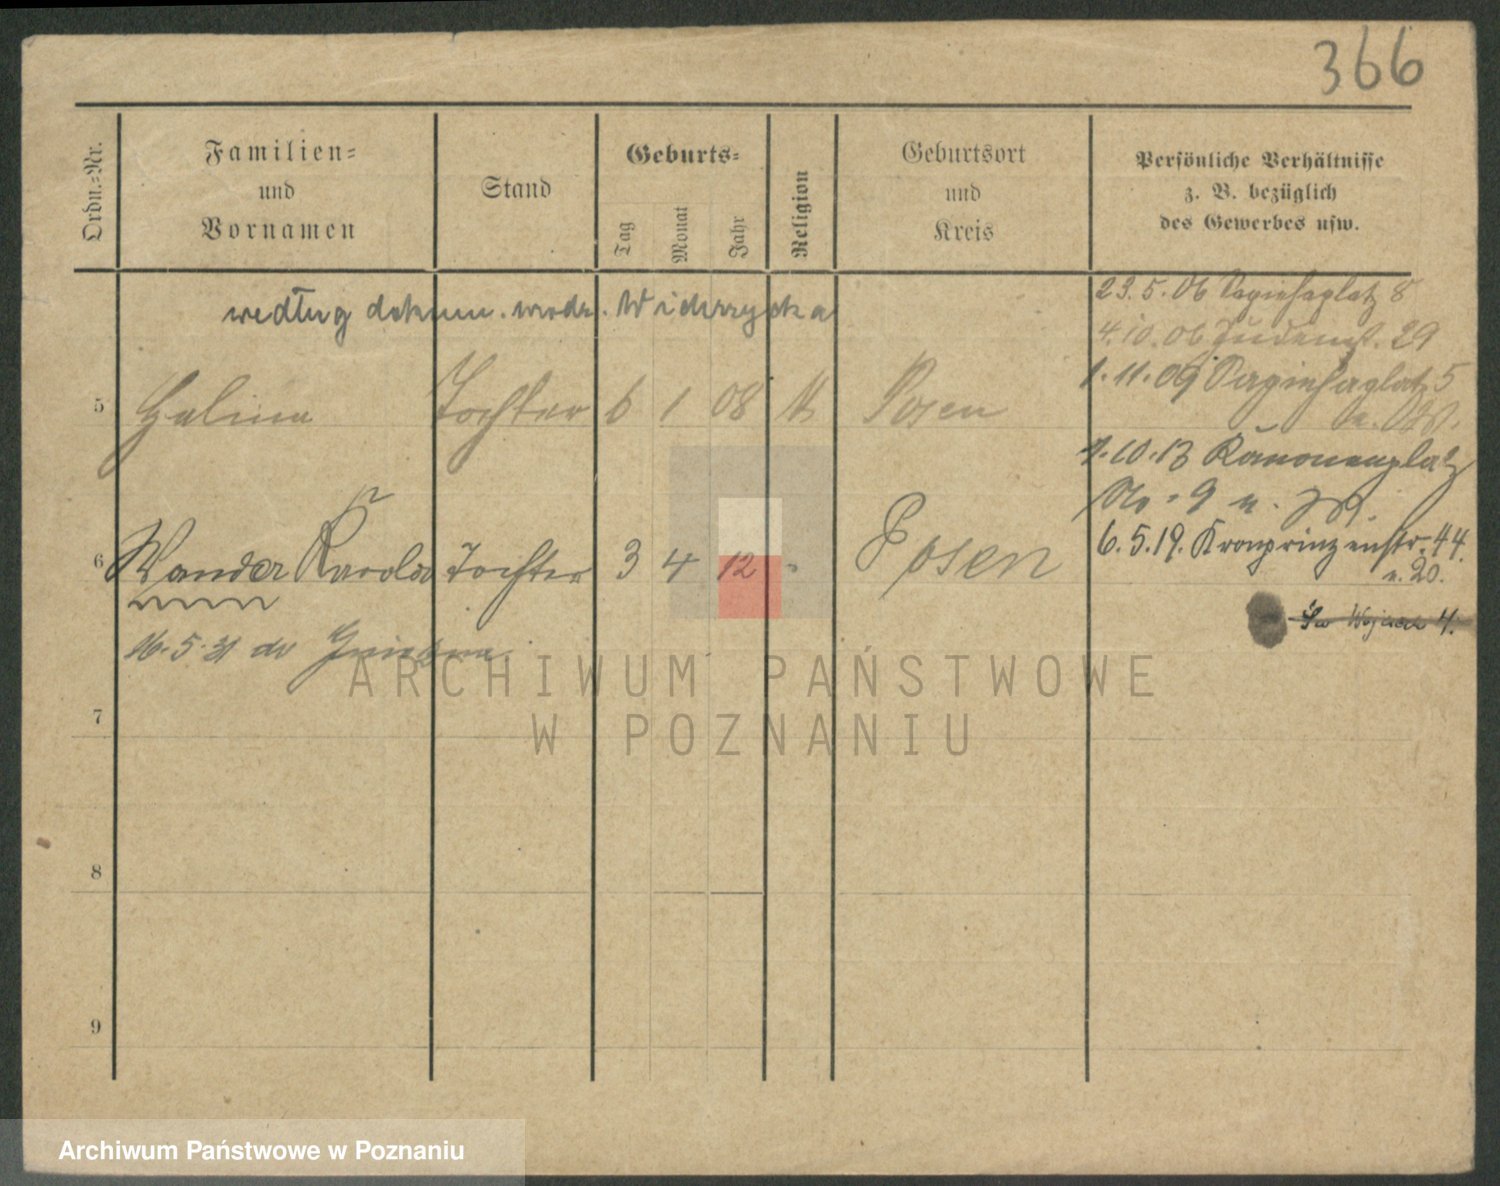 366
Ordn.-Nr.
Familien-
und
Vornamen
Stand
Geburts-
Tag
Monat
Jahr
Religion
Geburtsort
und
Kreis
Persönliche Verhältnisse
z. B. bezüglich
des Gewerbes usw.
według dokum. urodz. Widerzycka
23. 5. 06 Sapiehaplatz 8
4. 10. 06 Judenst. 29
1. 11. 09 Sapiehaplatz 5
5 Halina Tochter 6 1 08 k Posen
1. 10. 13 Kanonenplatz
No. 9 u. W.
6. 5. 19. Kronprinzenstr. 44.
u. 20.
6 Wanda Karola Tochter 3 4 12 Posen
Św Wojciech 4.
16. 5. 31 do Gniezna
7
8
9
ARCHIWUM PAŃSTWOWE
W POZNANIU
Archiwum Państwowe w Poznaniu